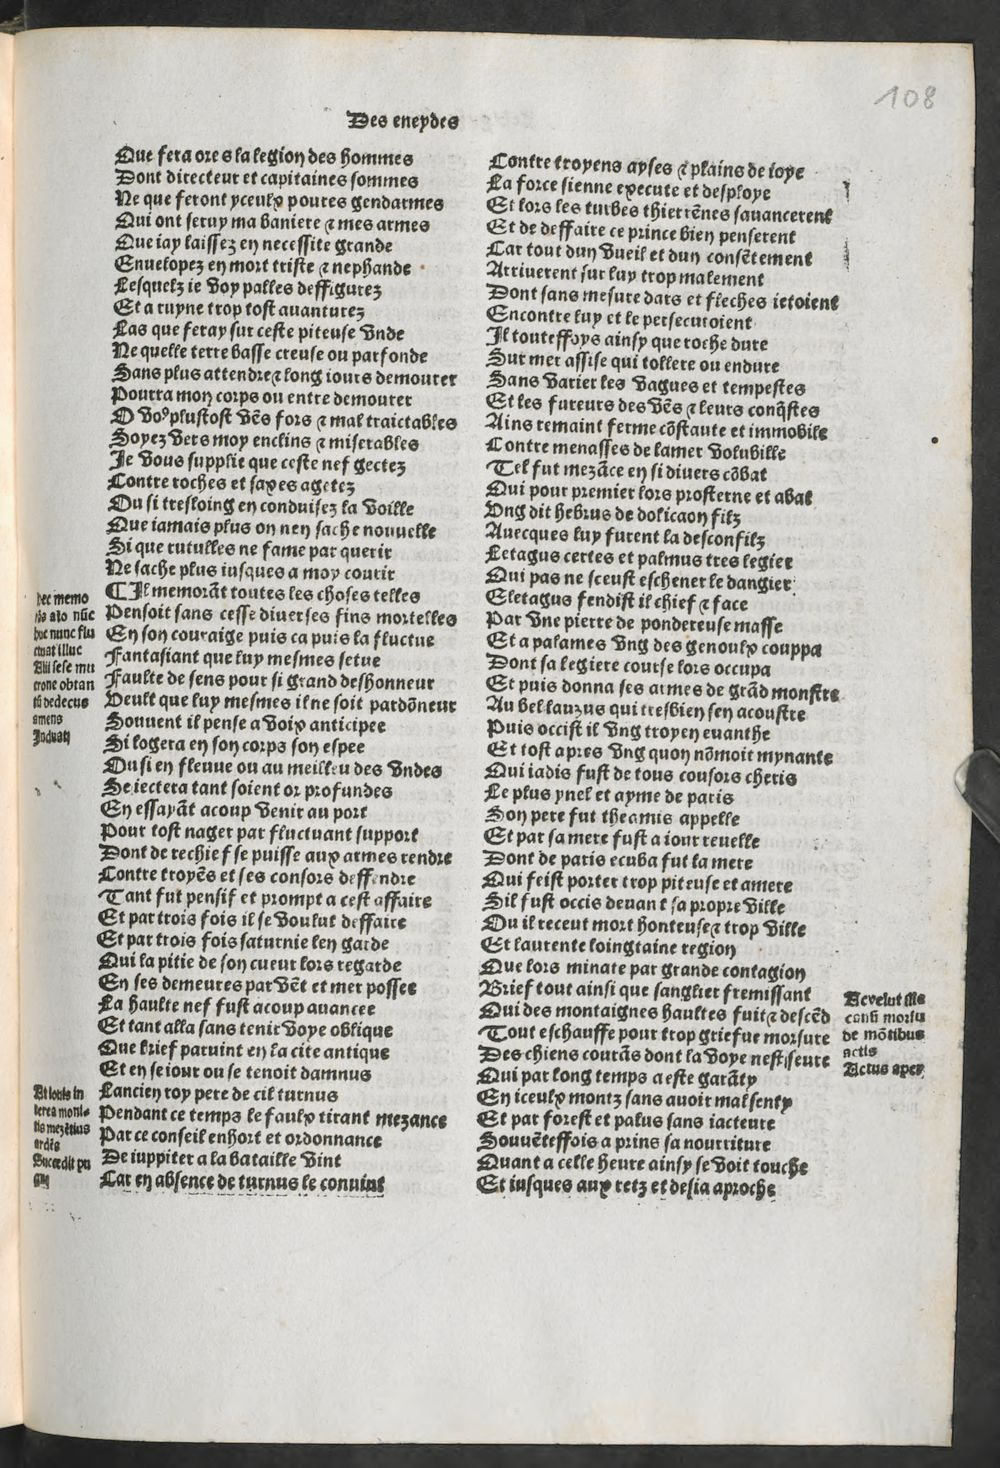 108
Des eneydes
Que fera ores la legion des hommes
Dont directeur et capitaines sommes
Ne que feront yceulx poures gendarmes
Qui ont seruy ma baniere ⁊ mes armes
Que iay laissez en necessite grande
Enuelopez en mort triste ⁊ nephande
Lesquelz ie voy palles deffigurez
Et a ruyne trop tost auanturez
Las que feray sur ceste piteuse vnde
Ne quelle terre basse creuse ou parfonde
Sans plus attendre ⁊ long iours demourer
Pourra mon corps ou entre demourer
O voꝰ plustost vẽs fors ⁊ mal traictables
Soyez vers moy enclins ⁊ miserables
Je vous supplie que ceste nef gectez
Contre roches et saxes agetez
Ou si tresloing en conduisez la voille
Que iamais plus on nen sache nouuelle
Si que rutulles ne fame par querir
Ne sache plus iusques a moy courir
¶ Il memorãt toutes les choses telles
Pensoit sans cesse diuerses fins mortelles
En son couraige puis ca puis la fluctue
Fantasiant que luy mesmes se tue
Faulte de sens pour si grand deshonneur
Veult que luy mesmes il ne soit pardõneur
Souuent il pense a voix anticipee
Si logera en son corps son espee
Ou si en fleuue ou au meilleu des vndes
Se iectera tant soient or profundes
En essayãt acoup venir au port
Pour tost nager par fluctuant support
Dont de rechief se puisse aux armes rendre
Contre troyẽs et ses consors deffendre
Tant fut pensif et prompt a cest affaire
Et par trois fois il se voulut deffaire
Et par trois fois saturnie len garde
Qui la pitie de son cueur lors regarde
En ses demeures par vẽt et mer possee
La haulte nef fust acoup auancee
Et tant alla sans tenir voye oblique
Que brief paruint en la cite antique
Et en seiour ou se tenoit damnus
Lancien roy pere de cil turnus
Pendant ce temps le faulx tirant mezance
Par ce conseil enhort et ordonnance
De iuppiter a la bataille vint
Car en absence de turnus le conuint
hec memo
rãs aĩo nũc
huc nunc flu
ctuat illuc
An sese mu
crone obtan
tũ dedecus
amens
Induat
At iouis in
terea moni-
tis mezẽtius
ardẽs
Succedit pu
gne
Contre troyens ayses ⁊ plains de ioye
La force sienne execute et desploye
Et lors les turbes thierrẽnes sauancerent
Et de deffaire ce prince bien penserent
Car tout dun vueil et dun consẽtement
Arriuerent sur luy trop malement
Dont sans mesure dars et fleches ietoient
Encontre luy et le persecutoient
Il touteffoys ainsy que roche dure
Sur mer assise qui tollere ou endure
Sans varier les vagues et tempestes
Et les fureurs des vẽs ⁊ leurs conq̃stes
Ains remaint ferme cõstante et immobile
Contre menasses de lamer volubille
Tel fut mezãce en si diuers cõbat
Qui pour premier lors prosterne et abat
Vng dit hebrus de dolicaon filz
Auecques luy furent la desconfilz
Letagus certes et palmus tres legier
Qui pas ne sceust eschener le dangier
Eletagus fendist il chief ⁊ face
Par vne pierre de pondereuse masse
Et a palames vng des genoulx couppa
Dont sa legiere course lors occupa
Et puis donna ses armes de grãd monstre
Au bel lauzus qui tresbien sen acoustre
Puis occist il vng troyen euanthe
Et tost apres vng quon nõmoit mynante
Qui iadis fust de tous cousors cheris
Le plus ynel et ayme de paris
Son pere fut theamis appelle
Et par sa mere fust a iour reuelle
Dont de paris ecuba fut la mere
Qui feist porter trop piteuse et amere
Sil fust occis deuant sa propre ville
Ou il receut mort honteuse ⁊ trop ville
Et laurente loingtaine region
Que lors minate par grande contagion
Brief tout ainsi que sanglier fremissant
Qui des montaignes haultes fuit ⁊ descẽd
Tout eschauffe pour trop griefue morsure
Des chiens courãs dont la voye nest seure
Qui par long temps a este garãty
En iceulx montz sans auoir mal senty
Et par forest et palus sans iacteure
Souuẽteffois a prins sa nourriture
Quant a celle heure ainsy se voit touche
Et iusques aux retz et desia aproche
Ac velut ille
canũ morsu
de mõtibus
actis
Actus aper